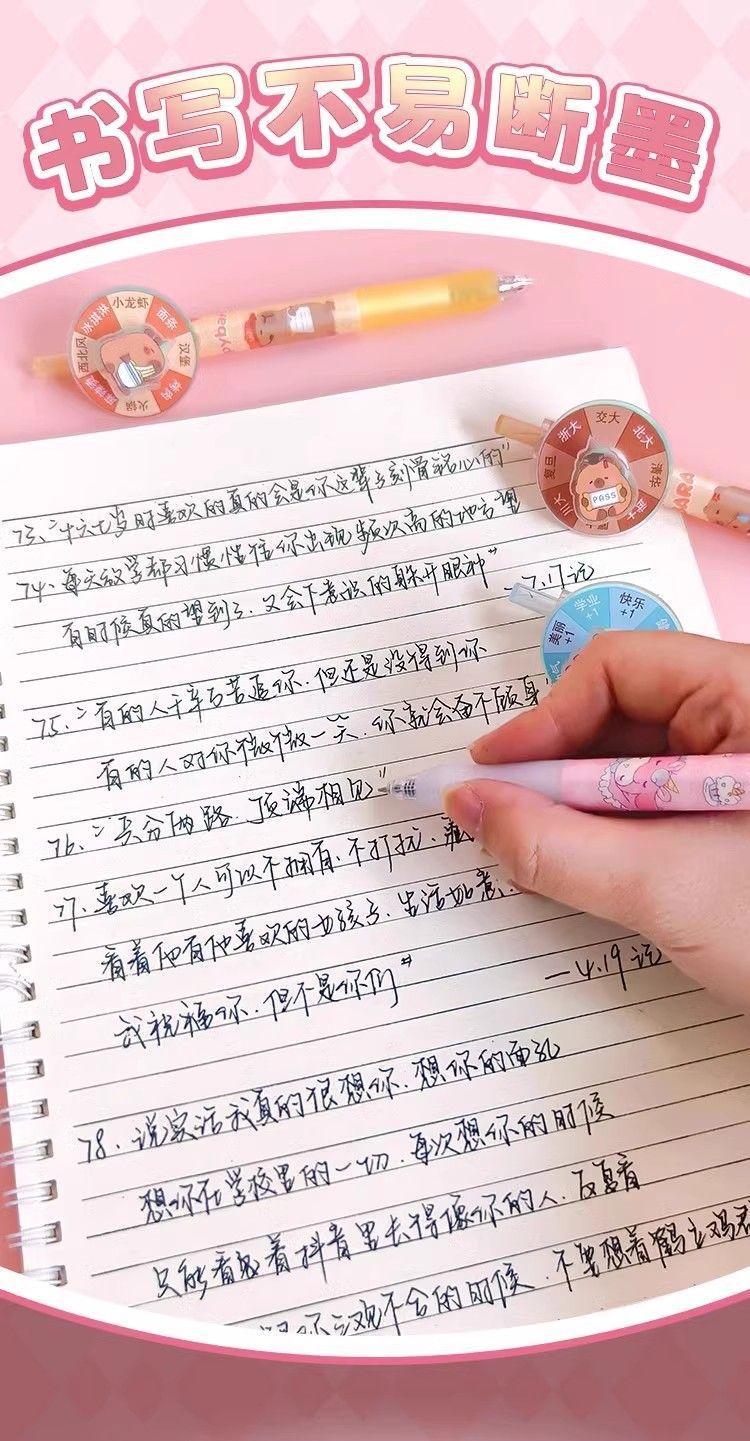 书写不易断墨
小龙虾
冰淇淋
面条
西北风
汉堡
烤肉
麻辣烫
火锅
交大
浙大
北大
复旦
清华
川大
PASS
学业+1
快乐+1
美丽+1
73、"十六七岁时喜欢的真的会是你这辈子刻骨铭心的"
74、每天放学都习惯性往你出现频次高的地方望
有时候真的望到了、又会下意识的躲开眼神" —7.17记
75、"有的人千辛万苦追你、但还是没得到你
有的人对你微微一笑、你就会奋不顾身"
76、"共分两路、顶端相见"
77、喜欢一个人可以不拥有、不打扰、藏
看着他有他喜欢的女孩子、生活如意、
我祝福你、但不是你们" —4.19记
78、说实话我真的很想你、想你的面孔
想你在学校里的一切、每次想你的时候
只能看着抖音里长得像你的人、反复看
不要想着鹤立鸡群